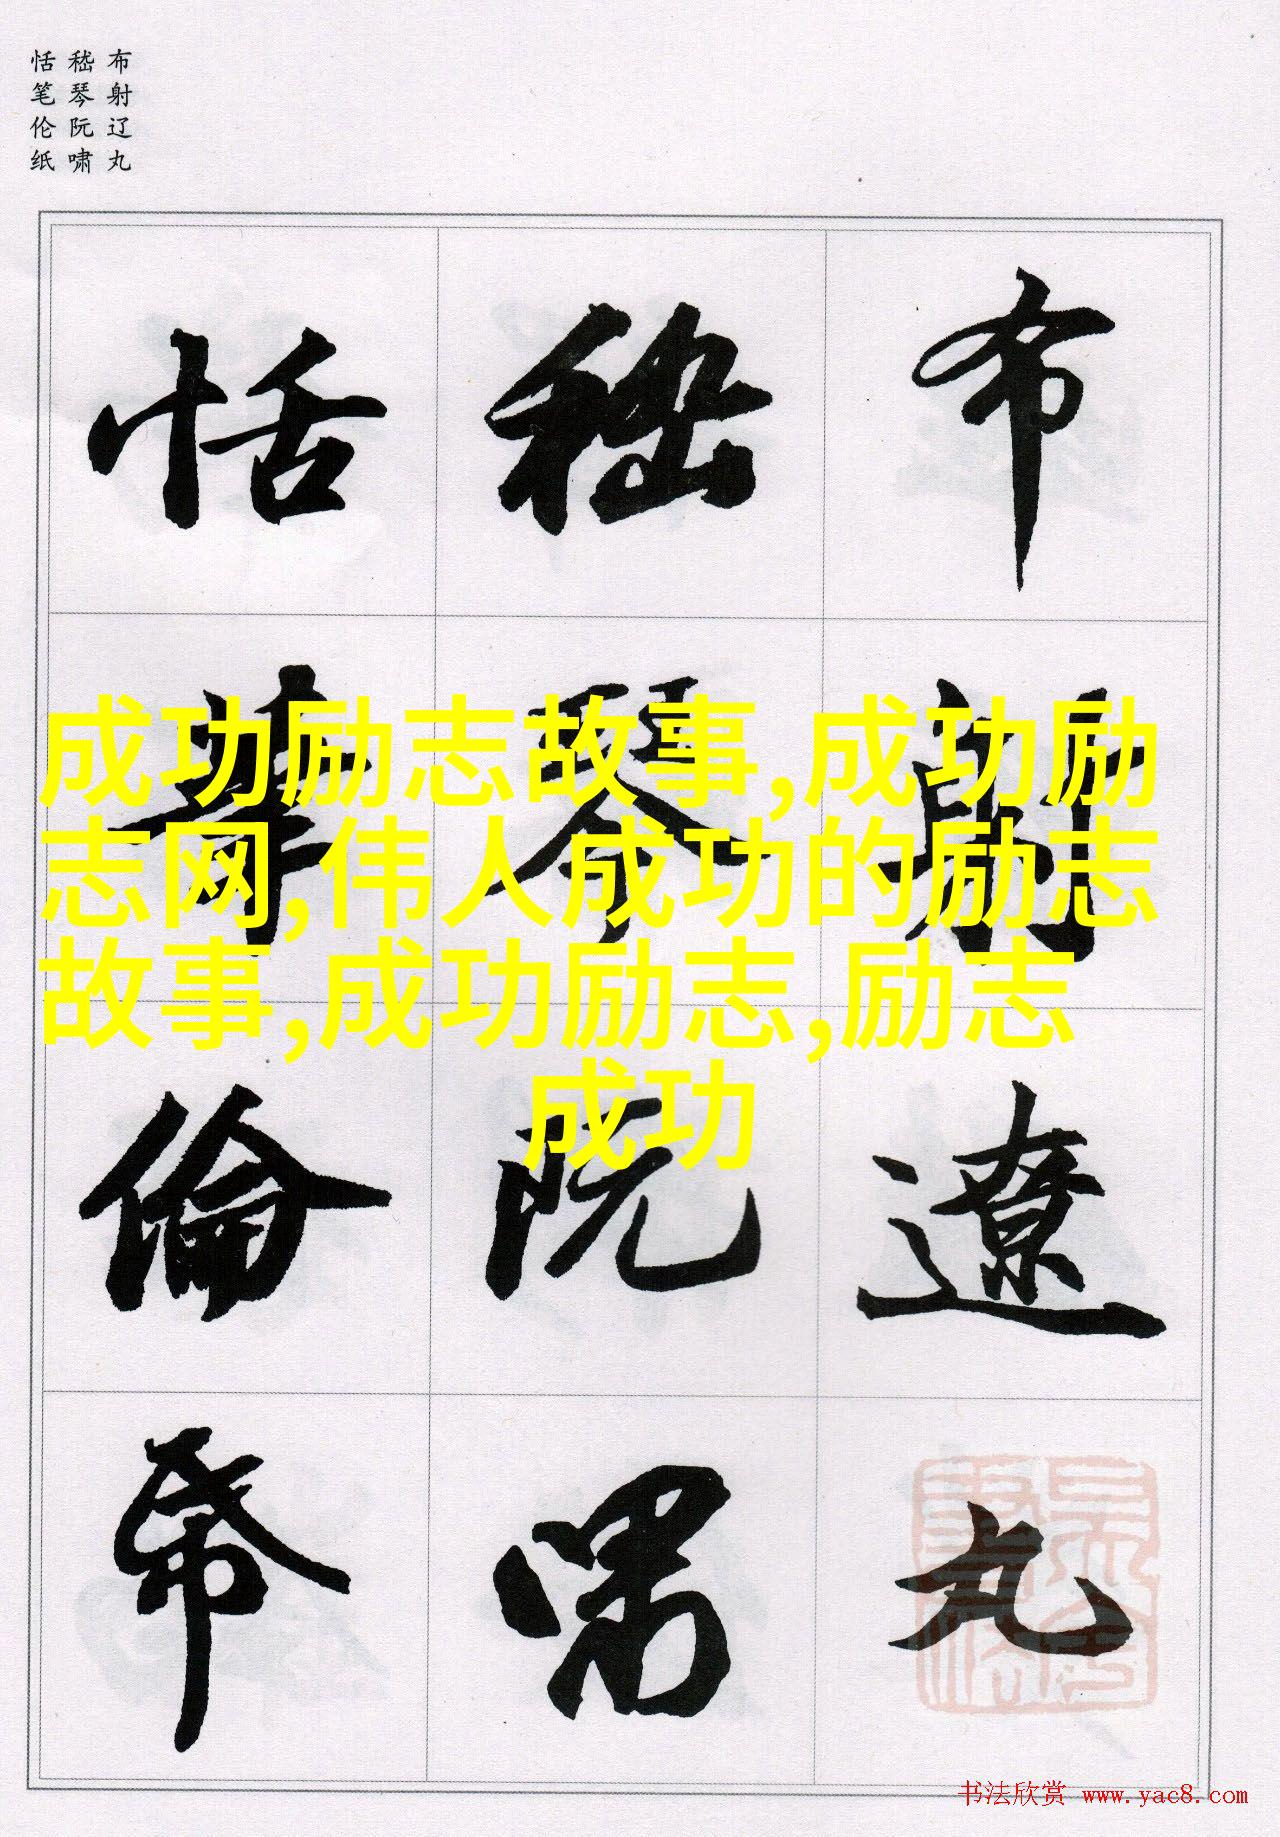 布射辽丸
嵇琴阮啸
恬笔伦纸
布射遼丸
嵇琴阮嘯
恬筆倫帋
成功励志故事,成功励
志网,伟人成功的励志
故事,成功励志,励志
成功
书法欣赏 www.yac8.com